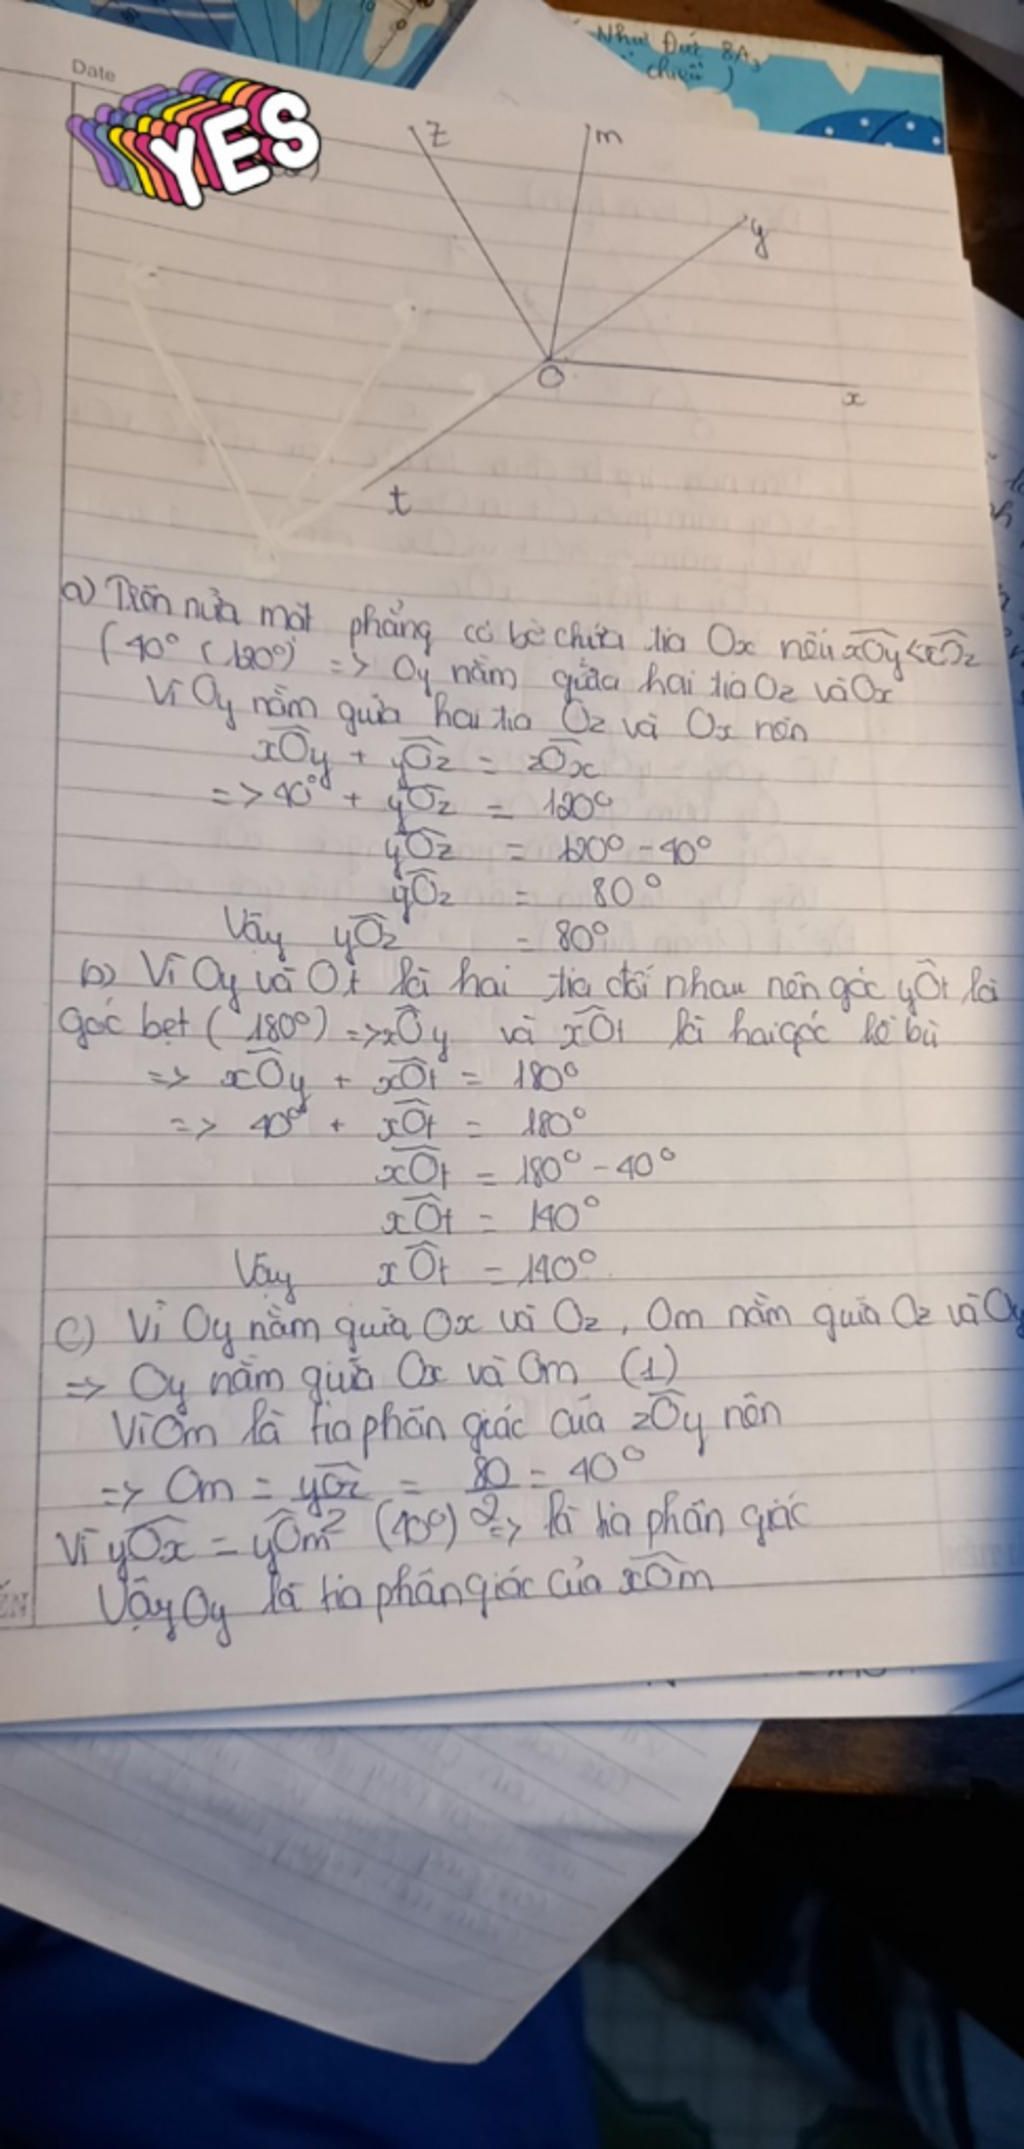 Như Đức 8A3
chiều )
Date
YES
z
m
y
O
x
t
a) Trên nửa mặt phẳng có bờ chứa tia Ox nếu xOy < xOz
(40° < 120°) => Oy nằm giữa hai tia Oz và Ox
Vì Oy nằm giữa hai tia Oz và Ox nên
xOy + yOz = zOx
=> 40° + yOz = 120°
yOz = 120° - 40°
yOz = 80°
Vậy yOz = 80°
b) Vì Oy và Ot là hai tia đối nhau nên góc yOt là
góc bẹt ( 180°) => xOy và xOt là hai góc kề bù
=> xOy + xOt = 180°
=> 40° + xOt = 180°
xOt = 180° - 40°
xOt = 140°
Vậy xOt = 140°
c) Vì Oy nằm giữa Ox và Oz, Om nằm giữa Oz và Oy
=> Oy nằm giữa Ox và Om (1)
Vì Om là tia phân giác của zOy nên
=> Om = yOz/2 = 80/2 = 40°
Vì yOx = yOm (40°) => là tia phân giác
Vậy Oy là tia phân giác của xOm